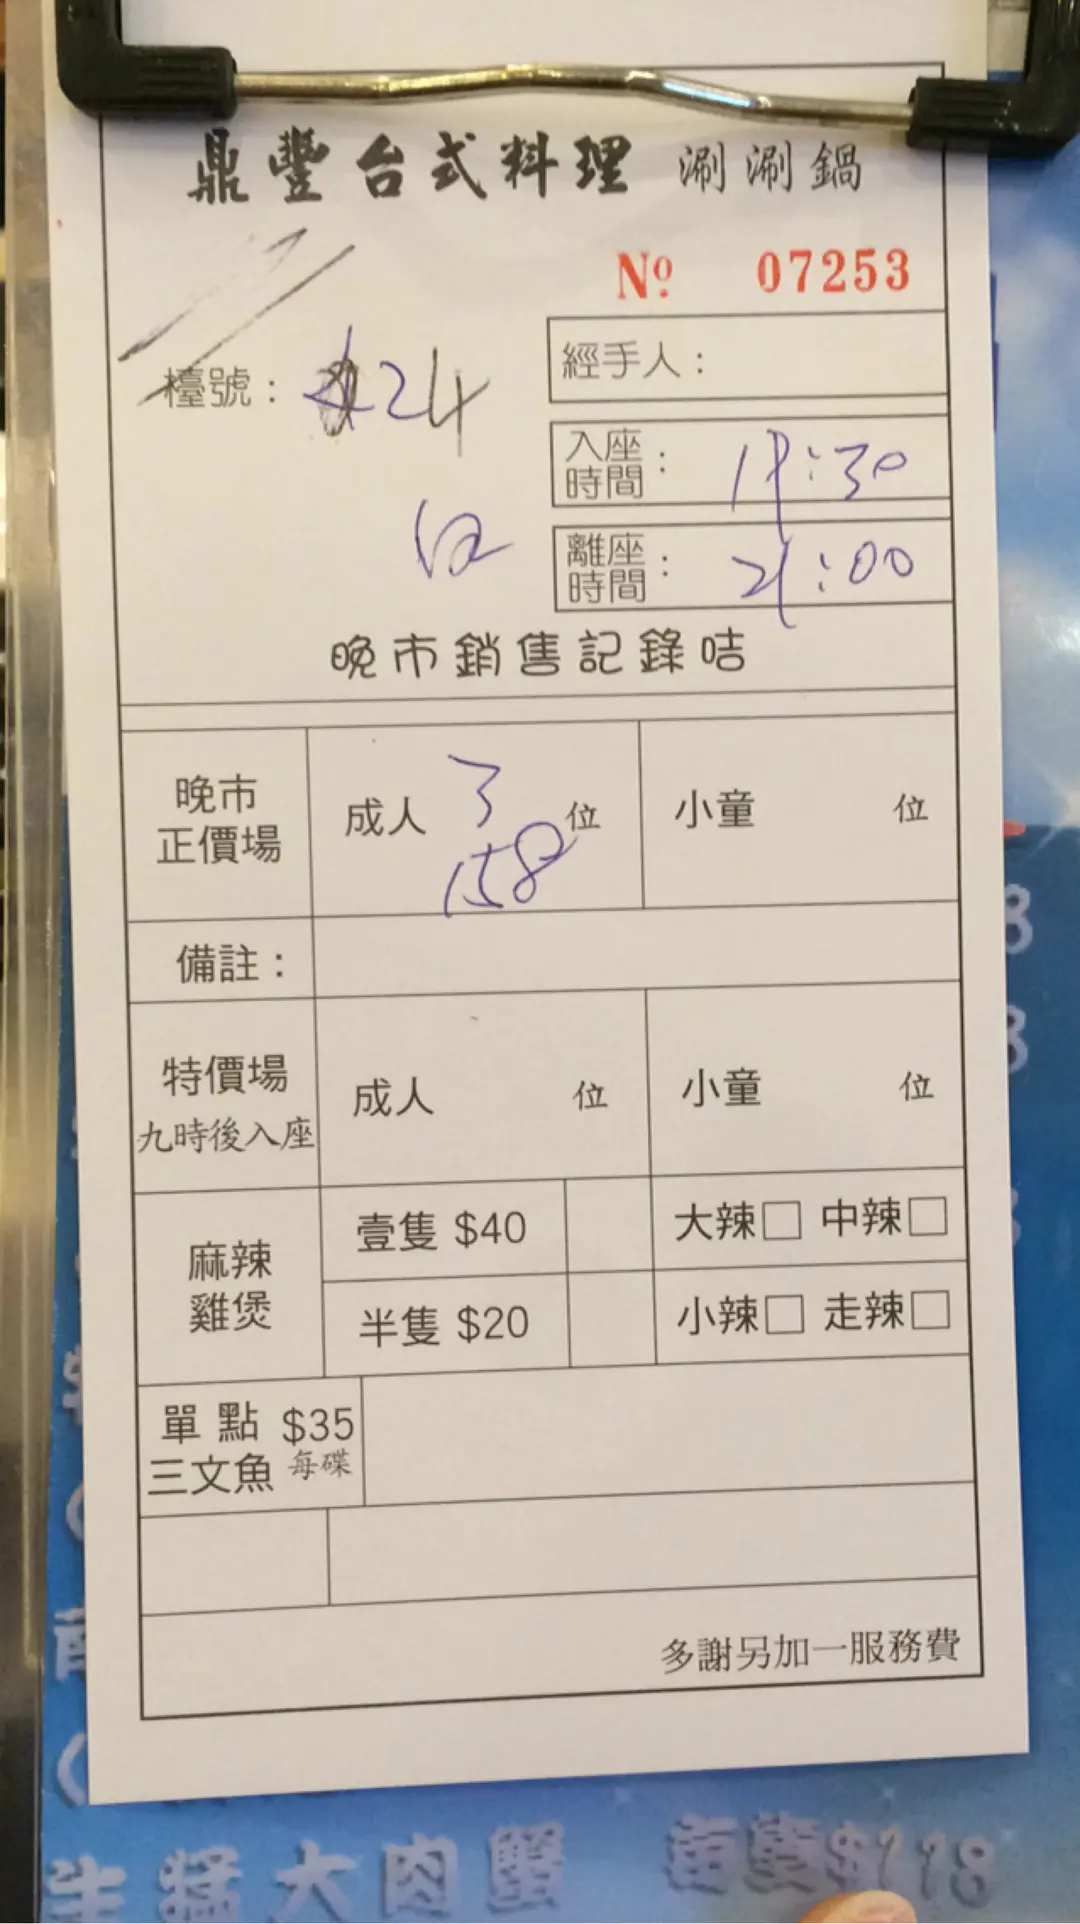 鼎豐台式料理 涮涮鍋
Nº 07253
檯號： 24
經手人：
入座時間：
:30
離座時間：
21:00
晚市銷售記錄咭
晚市
正價場
成人 3 位
158
小童 位
備註：
特價場
九時後入座
成人 位
小童 位
麻辣
雞煲
壹隻 $40
大辣□ 中辣□
半隻 $20
小辣□ 走辣□
單點 $35
三文魚 每碟
多謝另加一服務費
生猛大肉蟹 每隻$118